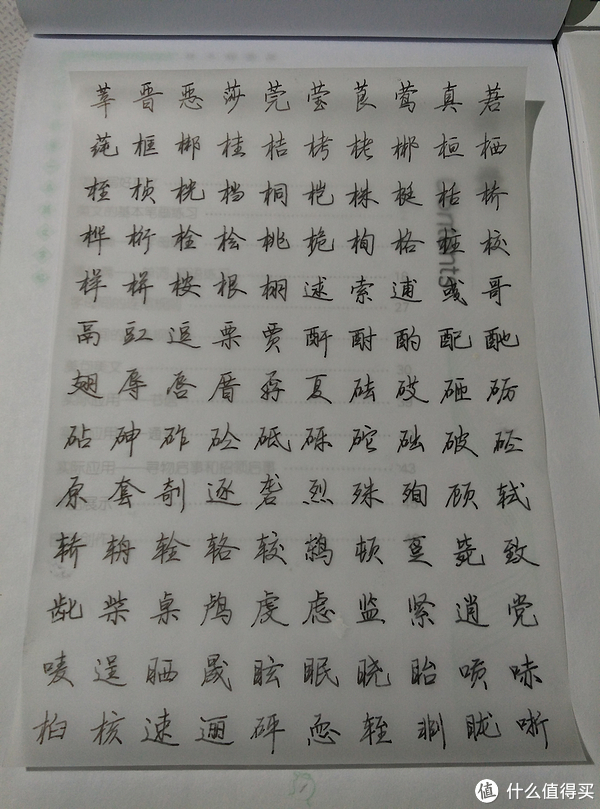 莘 晋 恶 莎 莞 莹 莨 莺 真 莙
莼 框 梆 桂 桔 栲 栳 郴 桓 栖
桎 桢 桄 档 桐 桤 株 梃 栝 桥
桦 桁 栓 桧 桃 桅 栒 格 桩 校
样 栟 桉 根 栩 逑 索 逋 彧 哥
鬲 豇 逗 栗 贾 酐 酎 酌 配 酏
翅 辱 唇 厝 孬 夏 砝 砹 砸 砺
砧 砷 砟 砼 砥 砾 砣 础 破 硁
原 套 剞 逐 砻 烈 殊 殉 顾 轼
轿 辀 辁 辂 较 鸫 顿 趸 毙 致
龀 柴 桌 鸬 虔 虑 监 紧 逍 党
唛 逞 晒 晟 眩 眠 晓 眙 唝 哧
桕 核 速 逦 砰 恧 轾 剕 眬 哳
值 什么值得买